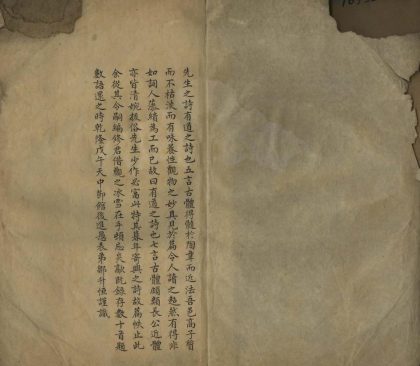 先生之詩有道之詩也五言古體得髓於陶韋而近法吾邑高子旨
而不枯淡而有味養性觀物之妙具見於篇令人讀之超然有得非
如詞人藻繢為工而已故曰有道之詩也七言古體頗類長公近體
亦皆清婉拔俗先生少作必富此特其暮年寄興之詩故篇帙止此
余從其令嗣編修君借觀之冰雪在手頓忘炎歊既錄存數十首題
數語還之時乾隆戊午天中節館後進愚表弟鄒升恒謹識